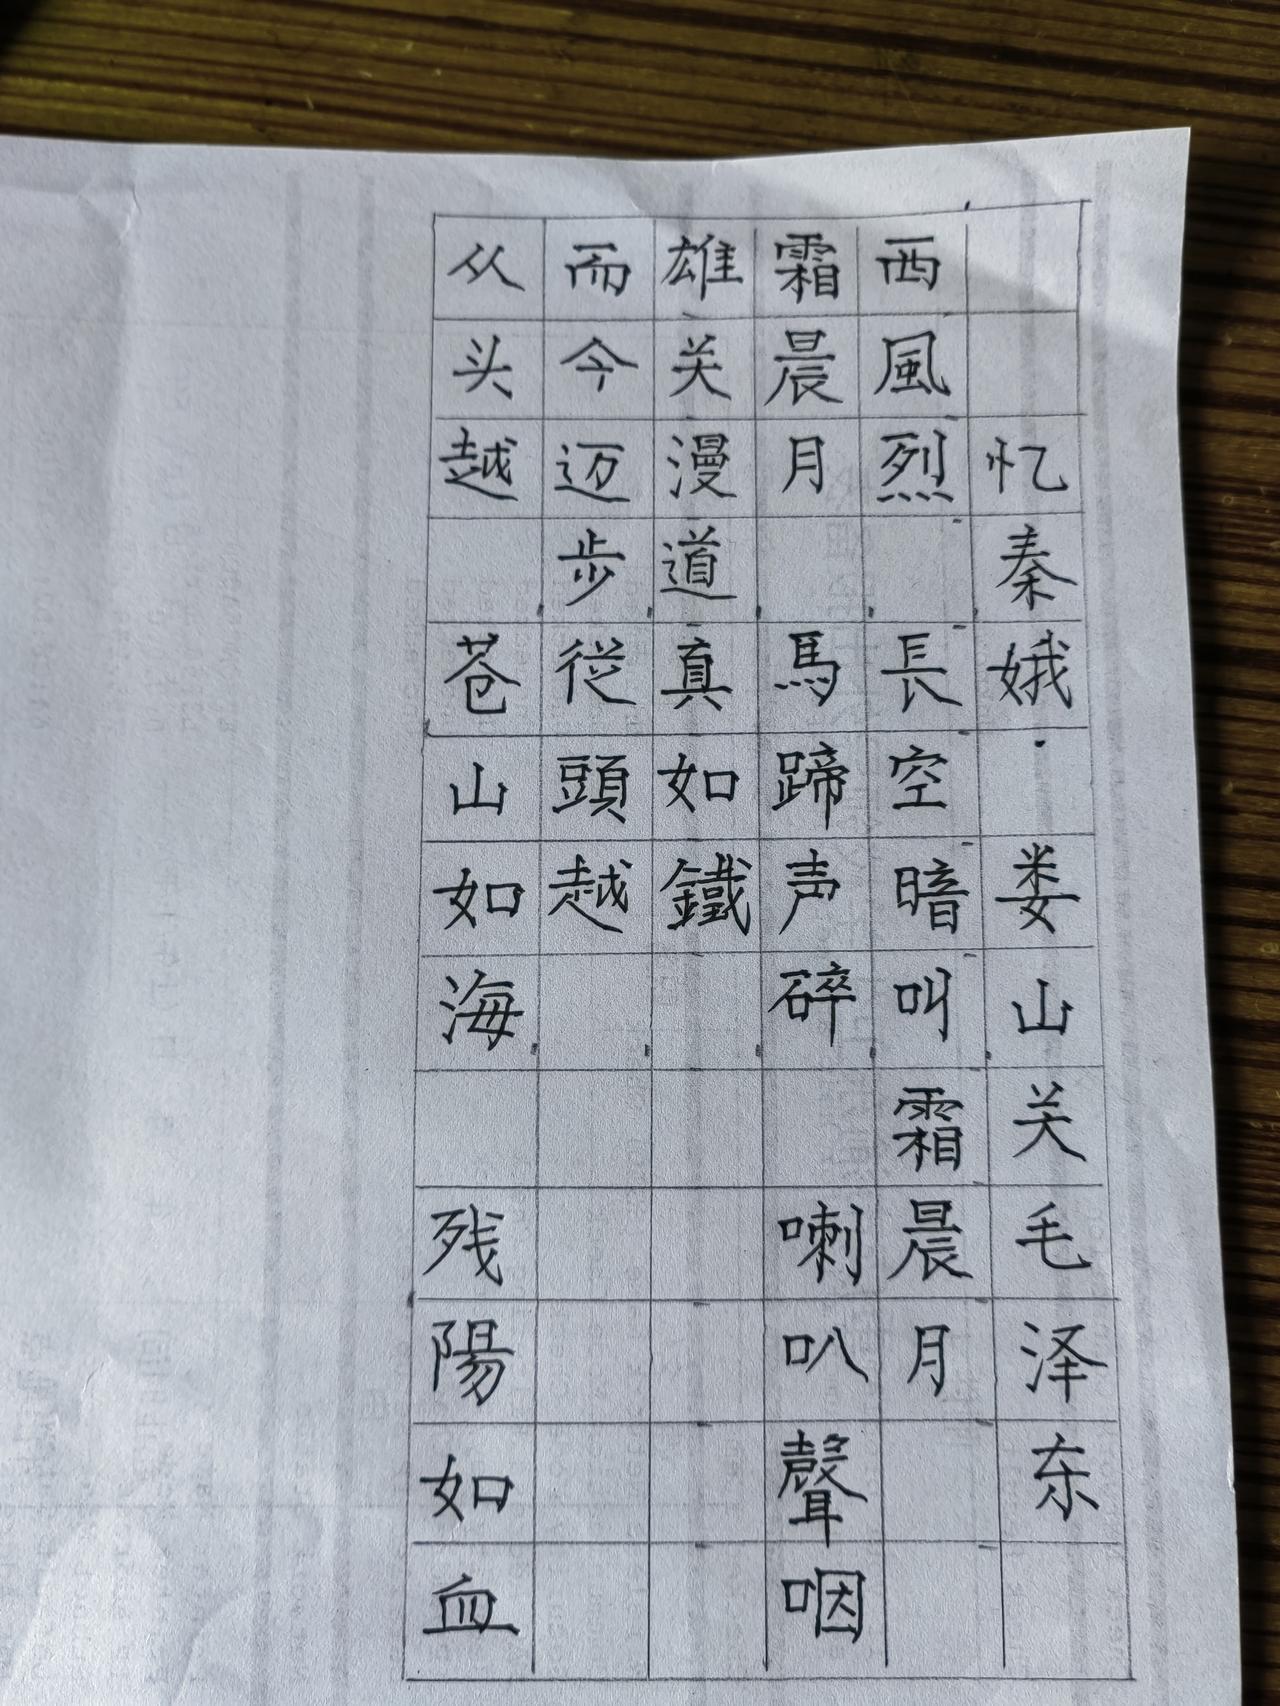 忆秦娥·娄山关毛泽东
西風烈 長空暗叫霜晨月
霜晨月 馬蹄声碎 喇叭聲咽
雄关漫道真如鐵
而今迈步從頭越
从头越 苍山如海 残陽如血